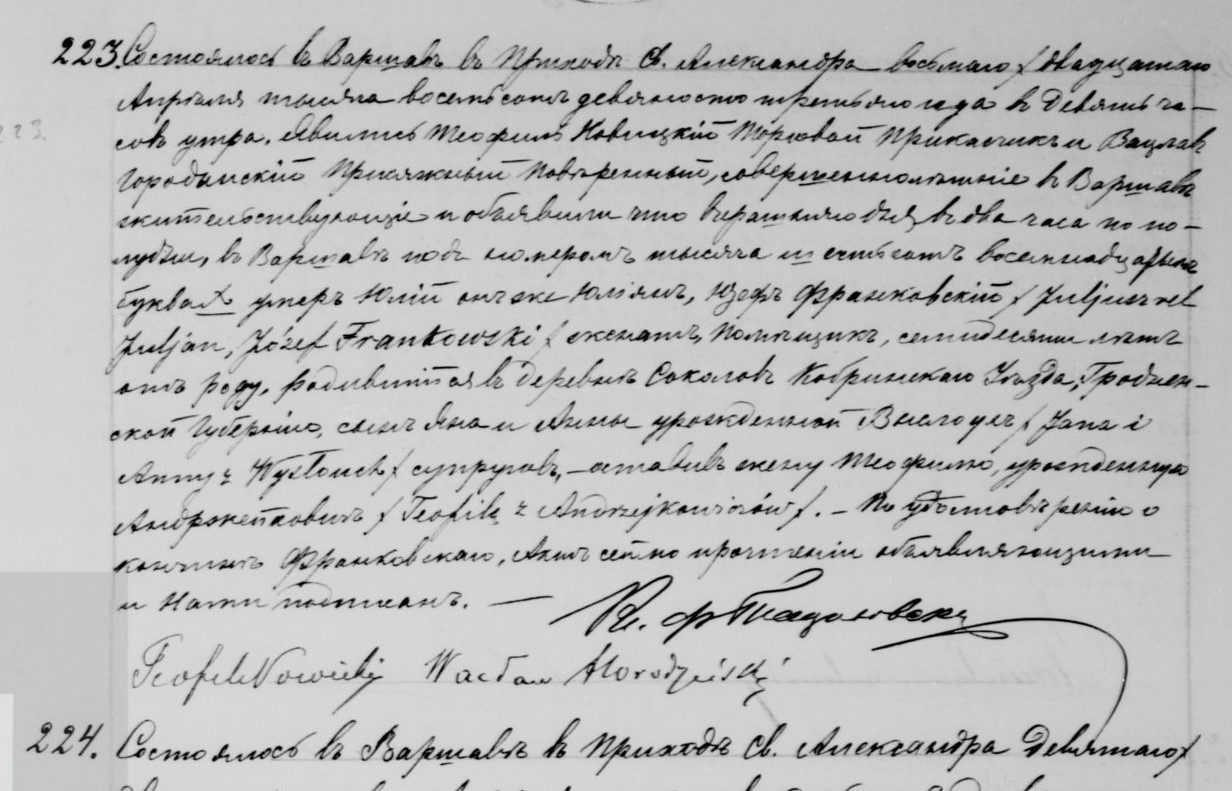 223. Состоялось въ Варшавѣ въ Приходѣ Св. Александра восьмаго / двадцатаго
Апрѣля тысяча восемьсотъ девяносто третьяго года въ девять ча-
совъ утра. Явились Теофилъ Новицкій Торговой Прикасчикъ и Вацлавъ
Городынскій Присяжный Повѣренный, совершеннолѣтніе въ Варшавѣ
жительствующіе и объявили что вчерашняго дня въ два часа по по-
лудни, въ Варшавѣ подъ номеромъ тысяча шестьсотъ восемнадцатымъ
буква умеръ Юлій онъ же Юліянъ, Юзефъ Франковскій / Juljusz vel
Juljan, Józef Frankowski / женатъ, помѣщикъ, семидесяти лѣтъ
отъ роду, родившійся въ деревнѣ Соколовѣ Кобринскаго Уѣзда, Гроднен-
ской Губерніи, сынъ Яна и Анны урожденной Выслоухъ / Jana i
Anny z Wysłouch / супруговъ, – оставивъ жену Теофилю, урожденную
Андржейковичъ / Teofilę z Andrzejkowiczów /. – По удостовѣреніи о
кончинѣ Франковскаго, Актъ сей по прочтеніи объявляющими
и Нами подписанъ. —
Teofil Nowicki Wacław Horodyński
224. Состоялось въ Варшавѣ въ Приходѣ Св. Александра Девятаго /